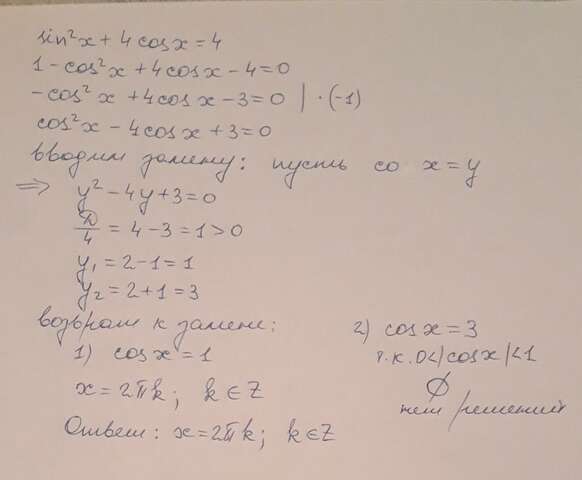 sin²x + 4 cosx = 4
1 - cos²x + 4cosx - 4 = 0
-cos²x + 4cosx - 3 = 0 | · (-1)
cos²x - 4cosx + 3 = 0
вводим замену: пусть со x = y
⇒ y² - 4y + 3 = 0
D/4 = 4 - 3 = 1 > 0
y₁ = 2 - 1 = 1
y₂ = 2 + 1 = 3
возврат к замене:
1) cosx = 1
x = 2πk; k ∈ Z
2) cosx = 3
т.к. 0<|cosx|<1
∅
нет решений
Ответ: x = 2πk; k ∈ Z